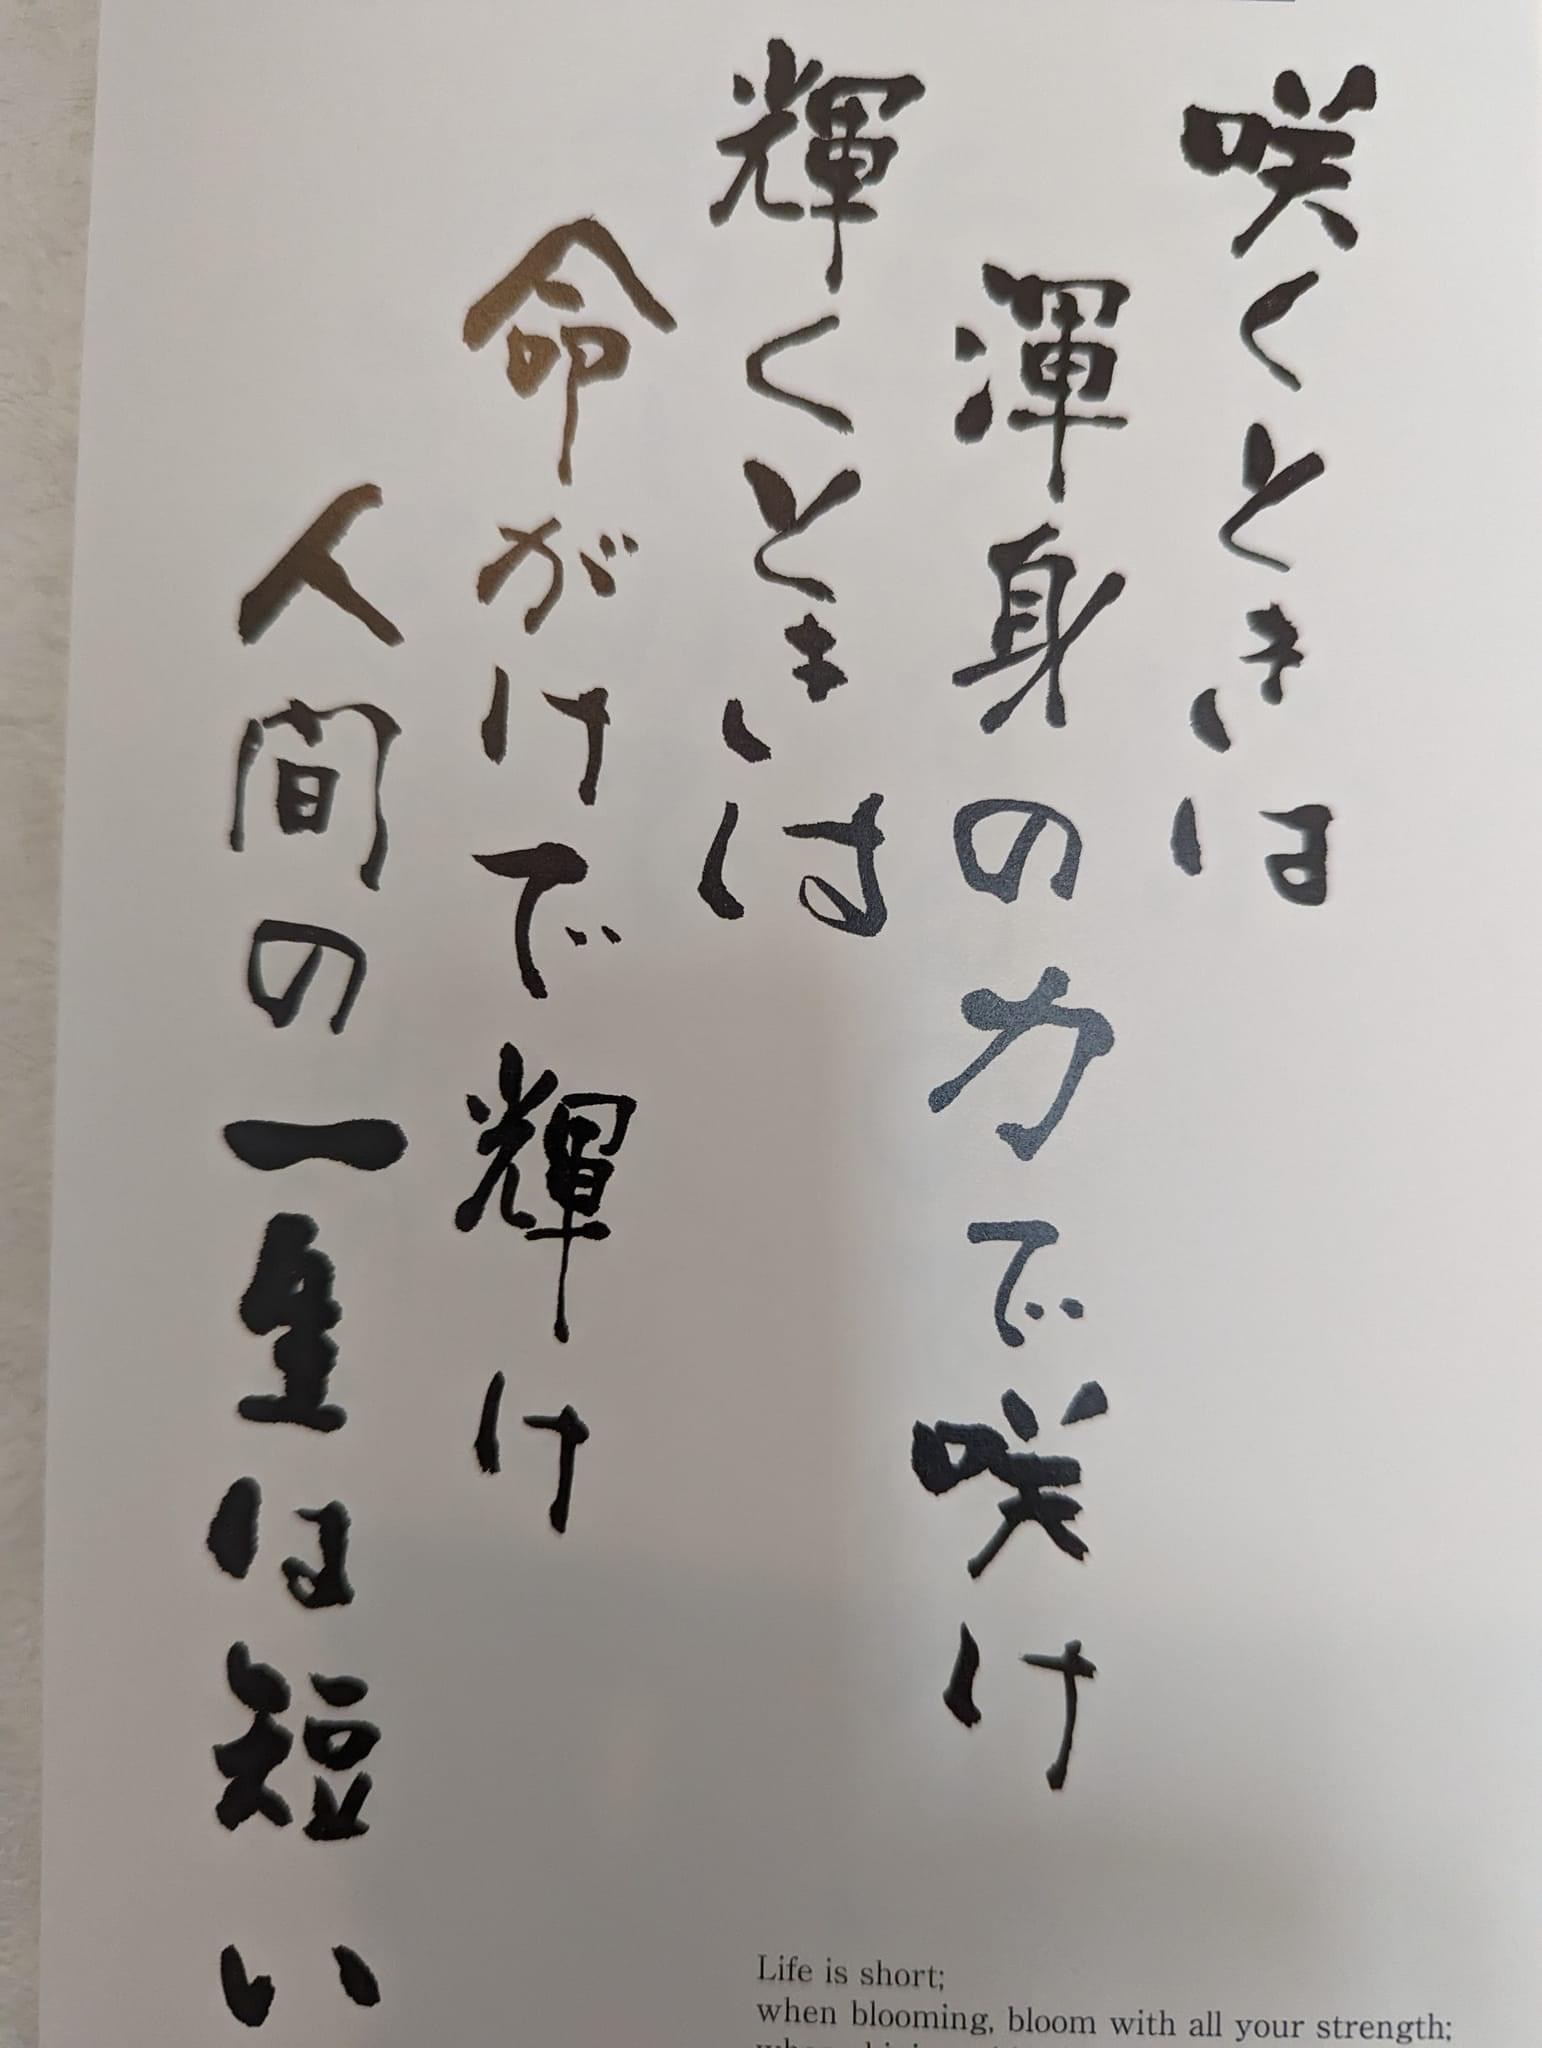 咲くときは
渾身の力で咲け
輝くときは
命がけで輝け
人間の一生は短い
Life is short;
when blooming, bloom with all your strength;